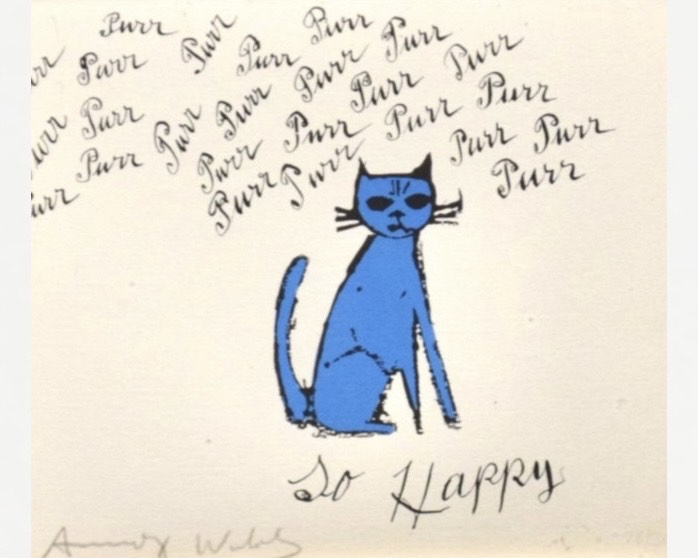 Purr Purr Purr Purr
urr Purr Purr Purr Purr
urr Purr Purr Purr Purr Purr
Purr Purr Purr Purr Purr Purr
urr Purr Purr Purr
So Happy